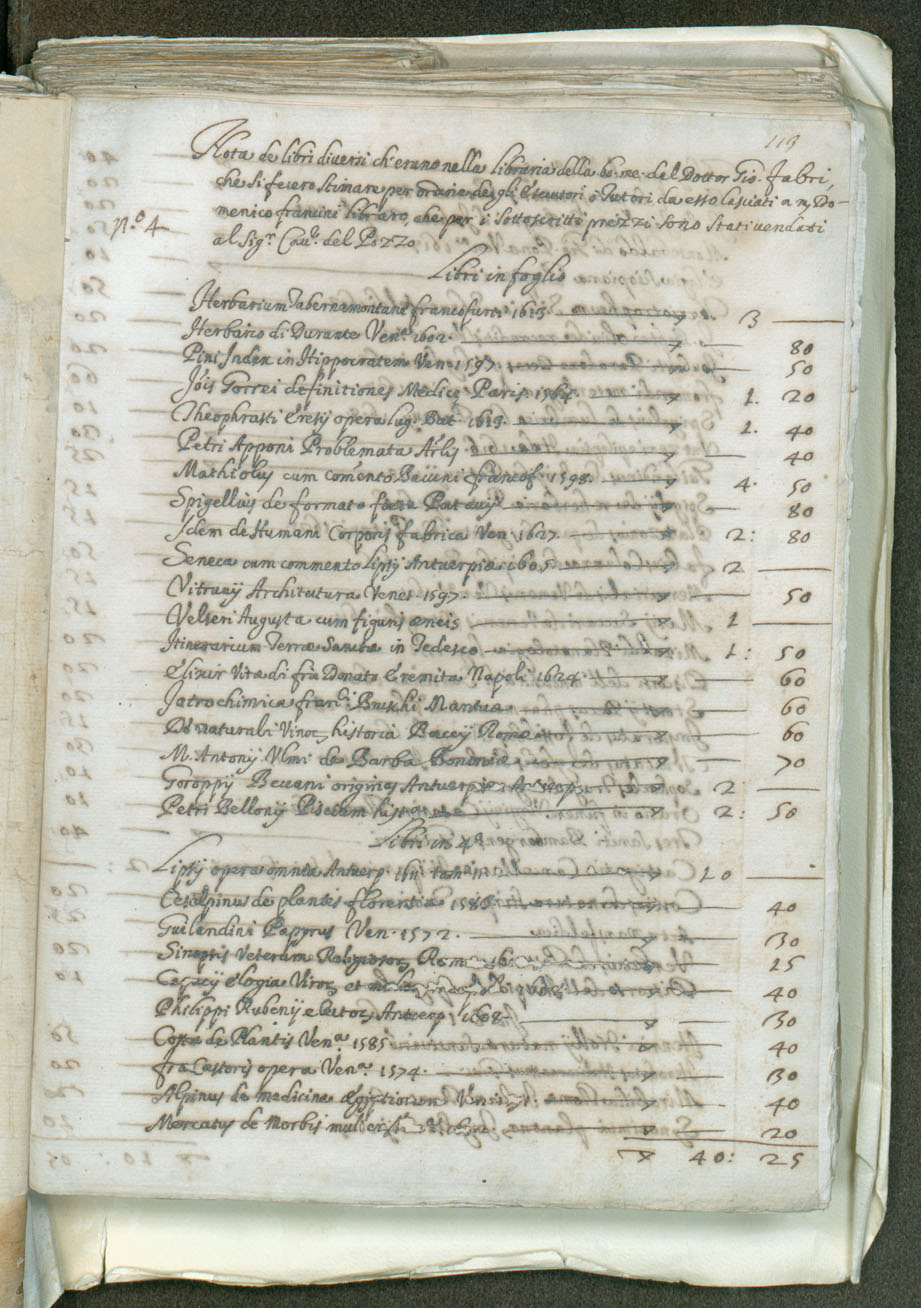 119
Nota de libri diversi ch'erano nella libraria della bo: me: del Dottor Gio. Fabri,
che si fecero stimare per ordine degli Esecutori o Tutori da esso lasciati a m. Do-
menico francini libraro, che per i sottoscritti prezzi sono stati venduti
N.º 4
al Sigr Cavr. del Pozzo
Libri in foglio
Herbarium Tabernemontani francofurti 1613 3 —
Herbario di Durante Vene. 1602. — 80
Pini Index in Hippocratem Ven. 1597 — 50
Jois Gorrei definitiones Medicę Paris. 1564 — 1. 20
Theophrasti Eresij opera lug. Bat. 1613. — 1. 40
Petri Apponi Problemata — 40
Mathiolus cum comento Bauini francof. 1598. 4. 50
Spigellius de formato foetu Patavij — 80
Idem de Humani Corporis fabrica Ven. 1627. — 2: 80
Seneca cum commento Lipsij Antuerpiæ 1605. 2 —
Vitruvij Architectura Venet. 1597. — 50
Velseri Augusta cum figuris æneis 1 —
Itinerarium Terræ Sanctæ in Tedesco — 1: 50
Elixir Vitæ di fra Donato Eremita Napoli 1624. — 60
Jatrochimica Mantuæ — 60
De naturali Vinoꝝ historia Baccij Romę — 60
M. Antonij Ulmi de Barba Bononię — 70
Goroppij Becani origines Antuerpię 2 —
Petri Bellonij Piscium — 2: 50
Libri in 4º
Lipsij opera omnia Antuerp. 10 —
Cesalpinus de plantis florentiæ 1583. — 40
Guilandini Papyrus Ven. 1572. — 30
Sinopsis Veterum Religiosoꝝ Romę — 25
elogia Viroꝝ et — 40
Philippi Rubenij electoꝝ Antuerp. 1608. — 30
Costa de Plantis Vena. 1585 — 40
fracastoris opera Vena. 1574. — 30
Alpinus de medicina ægyptiorum — 40
Mercatus de Morbis — 20
40: 25